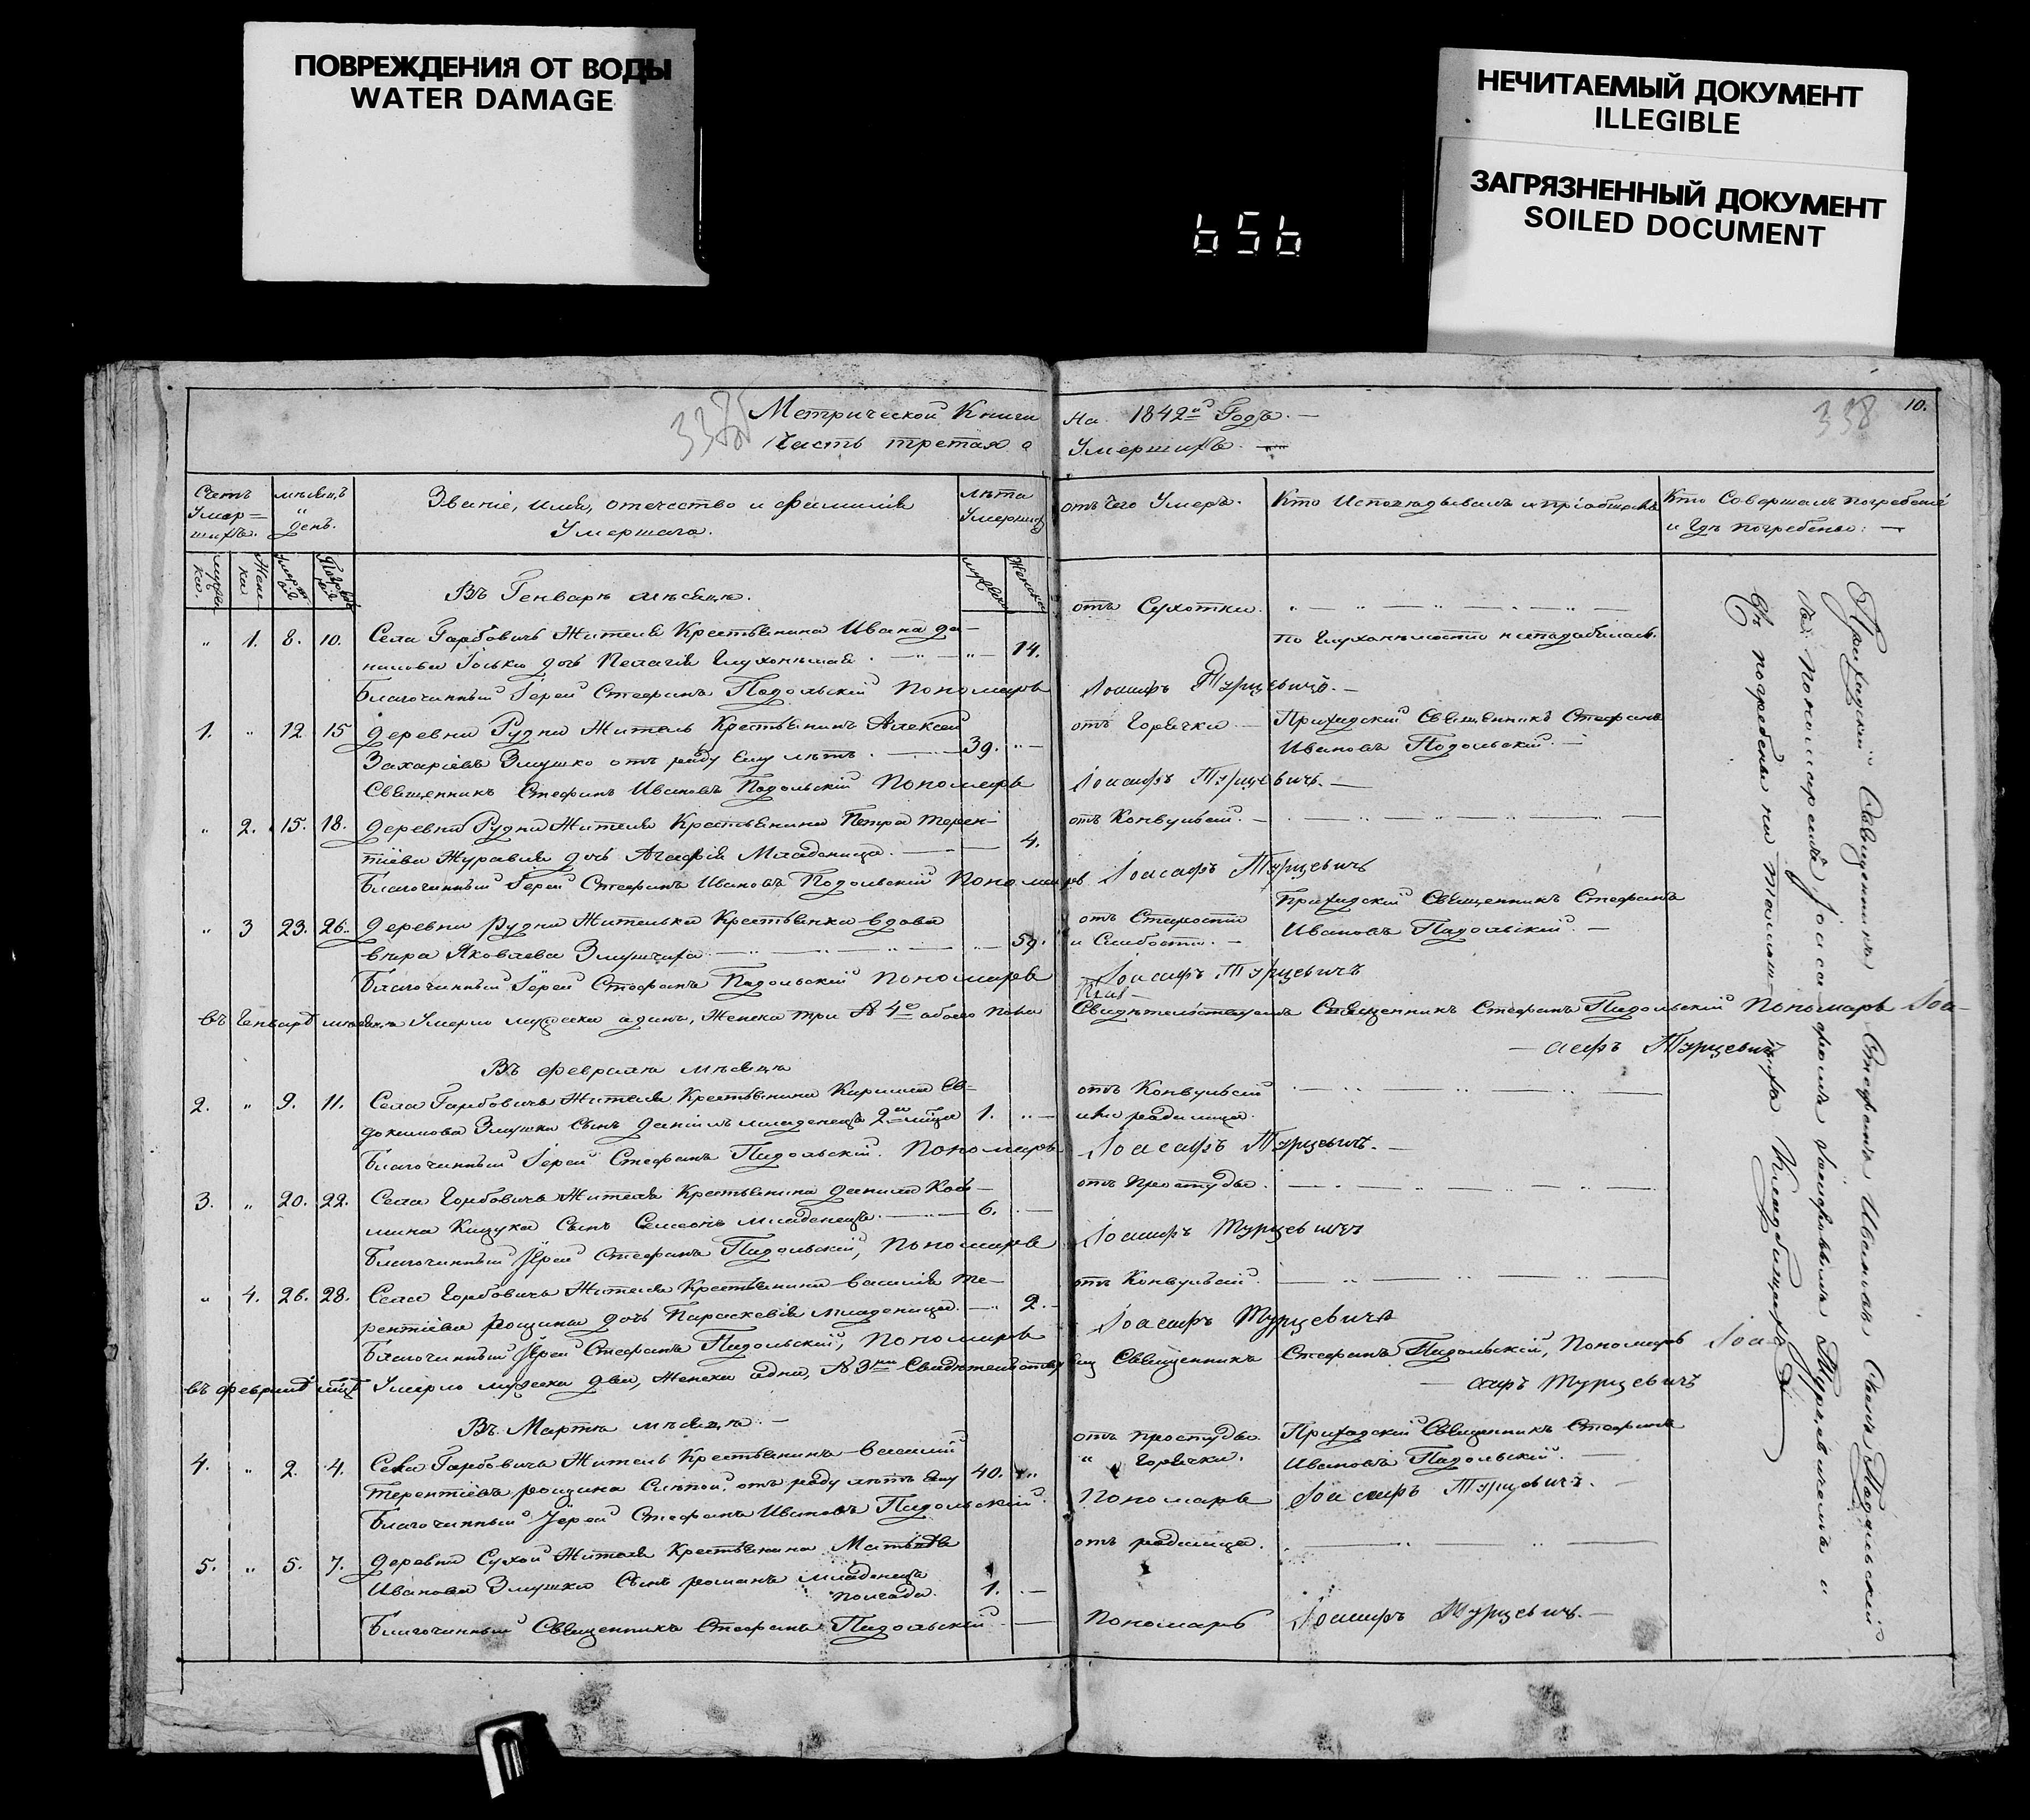 ПОВРЕЖДЕНИЯ ОТ ВОДЫ
WATER DAMAGE
НЕЧИТАЕМЫЙ ДОКУМЕНТ
ILLEGIBLE
ЗАГРЯЗНЕННЫЙ ДОКУМЕНТ
SOILED DOCUMENT
656
Метрической Книги на 1842й Годъ.
Часть третая о Умершихъ.
338
10.
Счетъ Умершихъ.
мѣсяцъ " день.
Званіе, имя, отечество и фамилія Умершаго.
лѣта Умершихъ
отъ чего Умеръ.
Кто Исповѣдывалъ и пріобщалъ
Кто Совершалъ погребеніе и Гдѣ погребены:
Въ Генварѣ мѣсяцѣ.
" 1. 8. 10. Села Гарбовичъ Жителя Крестьянина Ивана Да- отъ Сухотки.
нилова дочь Пелагія Глухонѣмая. 14. по Глухонѣмости
Благочинный Іерей Стефанъ Подольскій Пономарь Іоасафъ Турцевичъ.
1. " 12 15 Деревни Рудни Житель Крестьянинъ Алексей отъ Горячки Приходскій Священникъ Стефанъ
Захаріевъ Злушко отъ роду Ему лѣтъ. 39. Ивановъ Подольскій.
Священникъ Стефанъ Ивановъ Подольскій Пономарь Іоасафъ Турцевичъ.
" 2. 15. 18. Деревни Рудни Жителя Крестьянина Петра Терен- отъ Конвульсій.
тіева Журавля дочь Агафія Младеница. 4.
Благочинный Іерей Стефанъ Ивановъ Подольскій Пономарь Іоасафъ Турцевичъ
" 3 23. 26. Деревни Рудни Жителька Крестьянка вдова отъ Старости Приходскій Священникъ Стефанъ
Яковлева Злушчиха 59. и Слабости. Ивановъ Подольскій.
Благочинный Іерей Стефанъ Подольскій Пономарь Іоасафъ Турцевичъ
въ Генварѣ мѣсяцѣ Умерло мужеска одинъ, Женска три А 4е обоего пола Священникъ Стефанъ Подольскій Пономарь Іоа-
сафъ Турцевичъ
Въ февралѣ мѣсяцѣ
2. " 9. 11. Села Гарбовичъ Жителя Крестьянина Кирилла Ев- отъ Конвульсій
докимова Злушка Сынъ Даніилъ младенецъ 1. или родимца.
Благочинный Іерей Стефанъ Подольскій. Пономарь Іоасафъ Турцевичъ.
3. " 20. 22. Села Горбовичъ Жителя Крестьянина Данила Кось- отъ Простуды.
мина Кицука Сынъ Семеонъ младенецъ. 6.
Благочинный Іерей Стефанъ Подольскій, Пономарь Іоасафъ Турцевичъ
" 4. 26. 28. Села Горбовичъ Жителя Крестьянина Василія Те- отъ Конвульсій.
рентіева Рощина дочь Параскевія младеница. 2.
Благочинный Іерей Стефанъ Подольскій, Пономарь Іоасафъ Турцевичъ
въ февралѣ мѣсяцѣ Умерло мужеска два, Женска одна, А 3 Священникъ Стефанъ Подольскій, Пономарь Іоа-
сафъ Турцевичъ
Въ Мартѣ мѣсяцѣ.
4. " 2. 4. Села Гарбовичъ Житель Крестьянинъ Василій отъ простуды Приходскій Священникъ Стефанъ
Терентіевъ рощина Слѣпой, отъ роду лѣтъ Ему 40. " Горячки. Ивановъ Подольскій.
Благочинный Іерей Стефанъ Ивановъ Подольскій. Пономарь Іоасафъ Турцевичъ.
5. " 5. 7. Деревни Сухой Жителя Крестьянина Матвѣя отъ родимца.
Иванова Злушка Сынъ романъ младенецъ полгода. 1.
Благочинный Священникъ Стефанъ Подольскій Пономарь Іоасафъ Турцевичъ.
Приходскій Священникъ Стефанъ Ивановъ Сынъ Подольскій
Пономаремъ Іоасафомъ Турцевичемъ и
погребены на Кладбищахъ